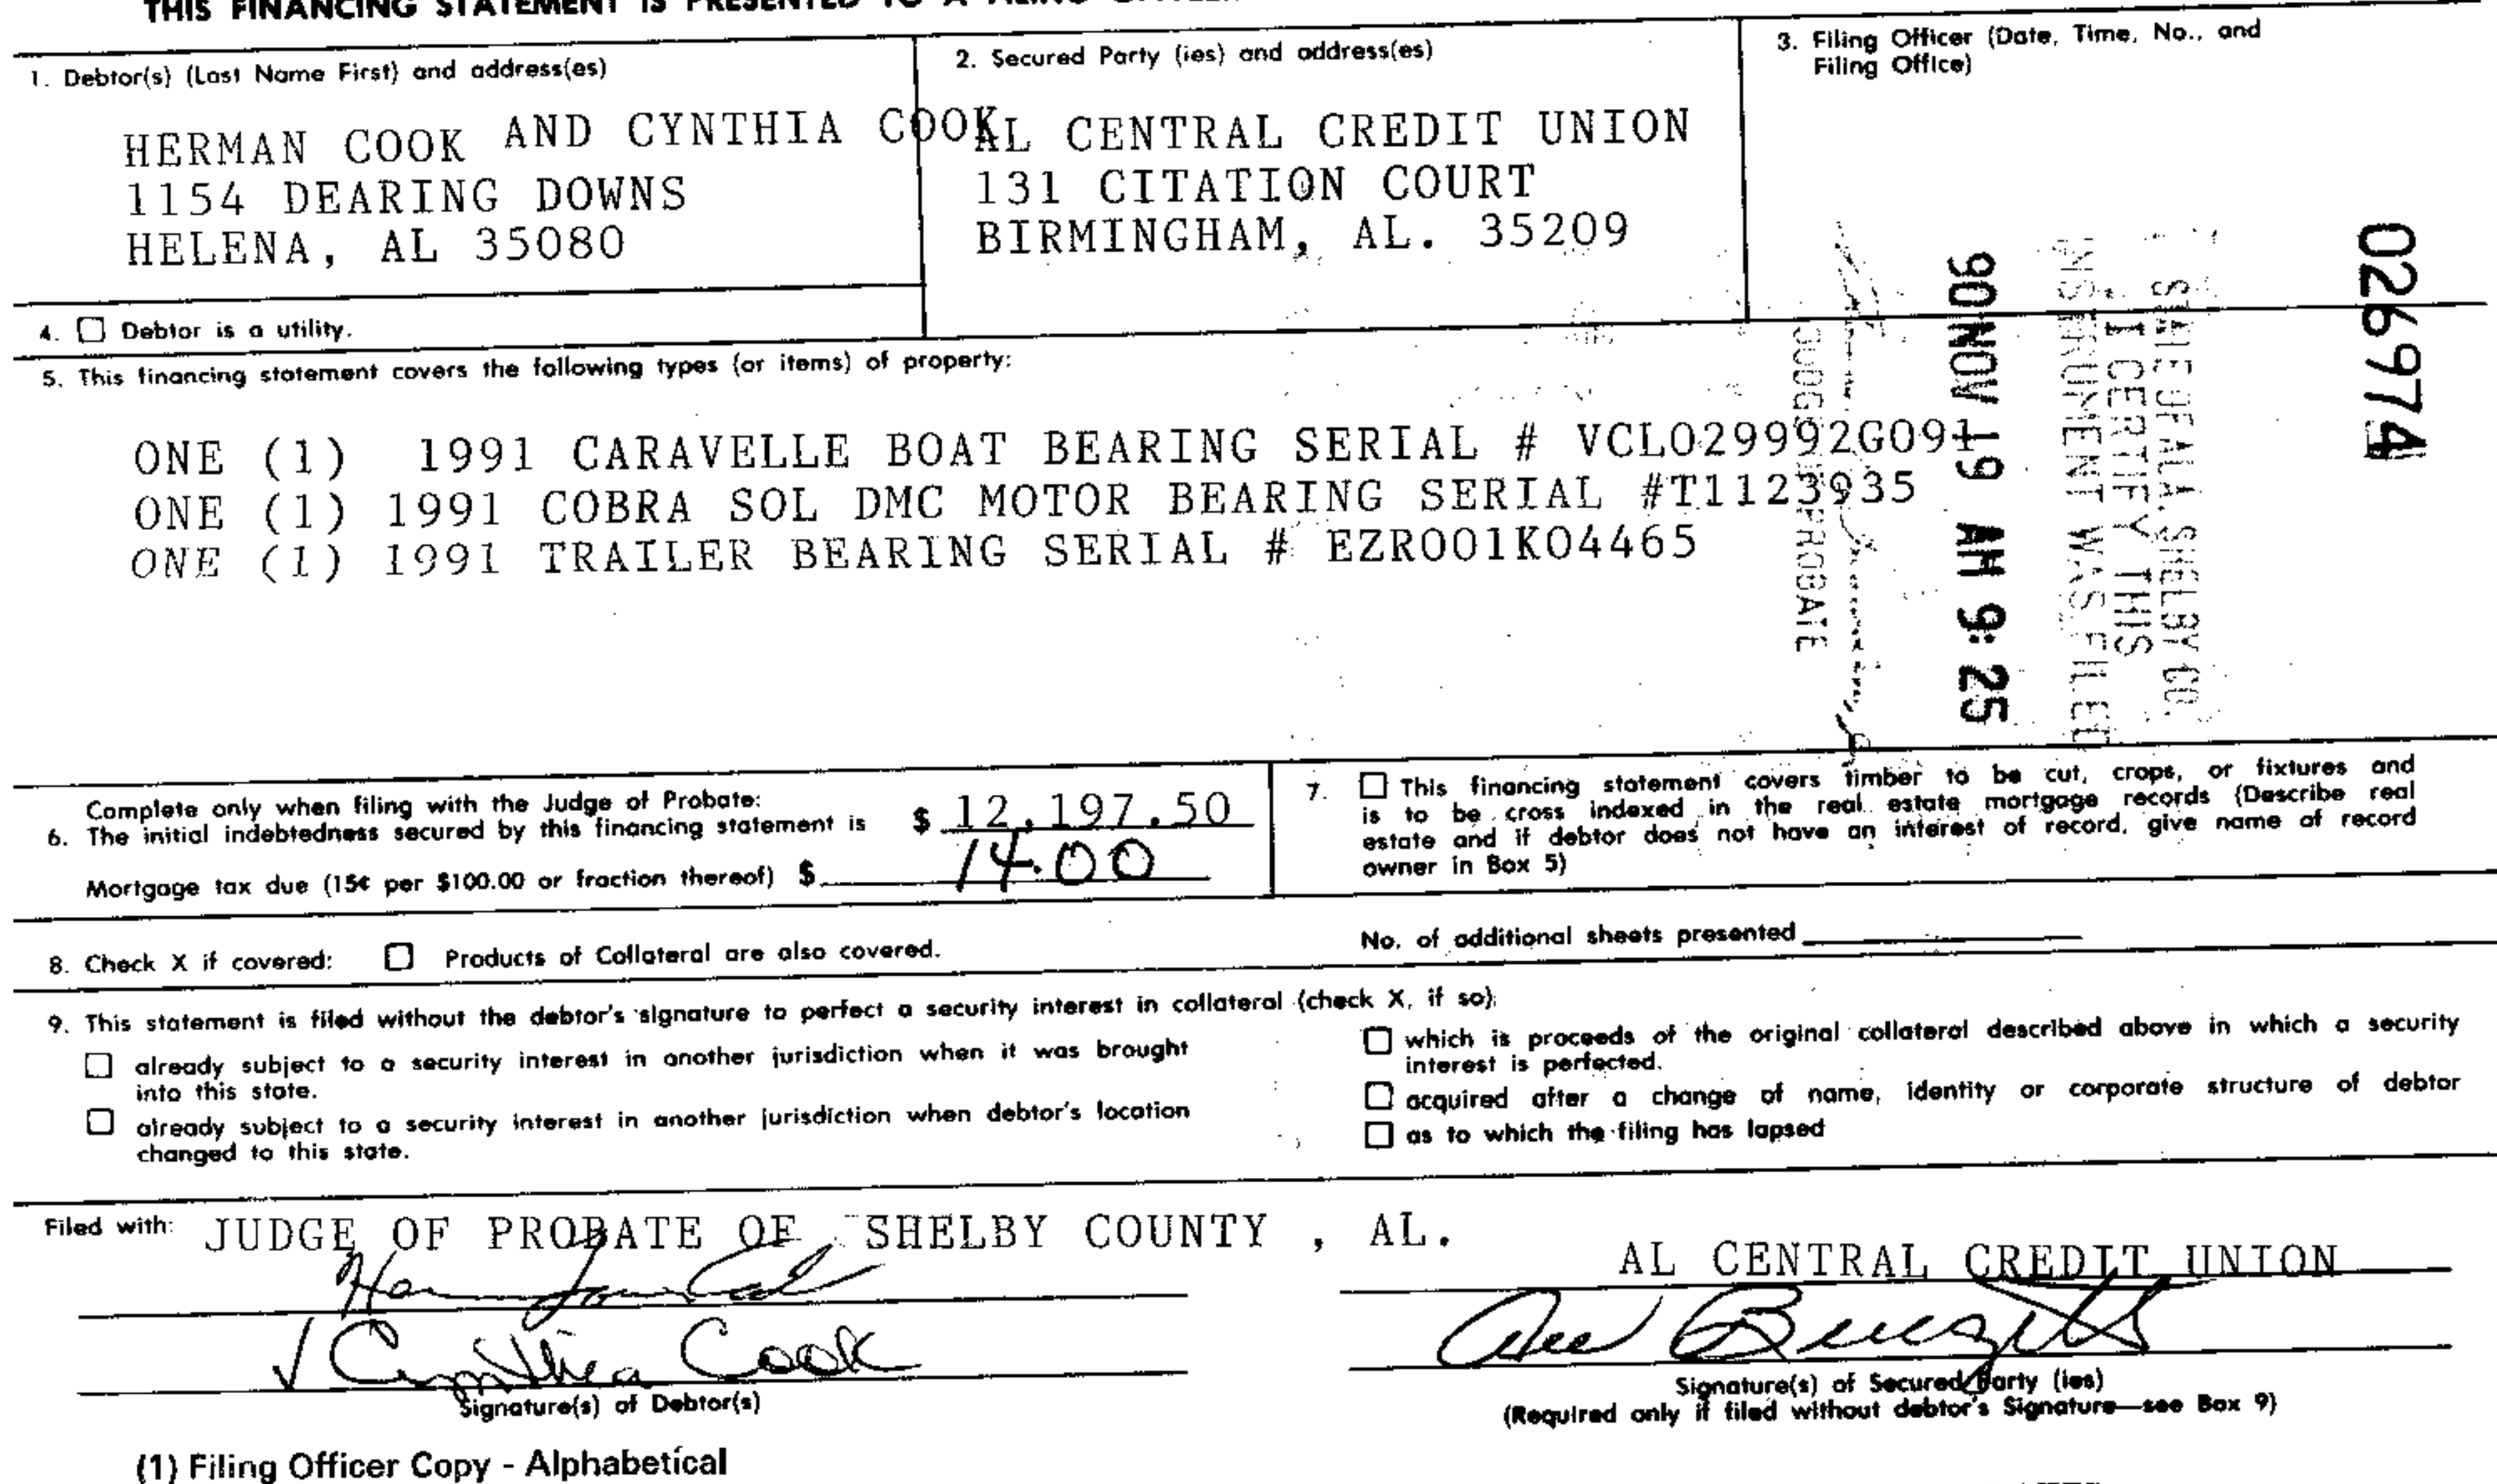 THIS FINANCING STATEMENT IS PRESENTED TO A FILING
1. Debtor(s) (Last Name First) and address(es)
HERMAN COOK AND CYNTHIA COOK
1154 DEARING DOWNS
HELENA, AL 35080
2. Secured Party (ies) and address(es)
AL CENTRAL CREDIT UNION
131 CITATION COURT
BIRMINGHAM, AL. 35209
3. Filing Officer (Date, Time, No., and
Filing Office)
026974
STATE OF ALA. SHELBY CO.
I CERTIFY THIS
INSTRUMENT WAS FILED
90 NOV 19 AM 9:25
JUDGE OF PROBATE
4. ☐ Debtor is a utility.
5. This financing statement covers the following types (or items) of property:
ONE (1) 1991 CARAVELLE BOAT BEARING SERIAL # VCL029992G091
ONE (1) 1991 COBRA SOL DMC MOTOR BEARING SERIAL #T1123935
ONE (1) 1991 TRAILER BEARING SERIAL # EZR001K04465
Complete only when filing with the Judge of Probate:
6. The initial indebtedness secured by this financing statement is $ 12,197.50
Mortgage tax due (15¢ per $100.00 or fraction thereof) $ 14.00
7. ☐ This financing statement covers timber to be cut, crops, or fixtures and
is to be cross indexed in the real estate mortgage records (Describe real
estate and if debtor does not have an interest of record, give name of record
owner in Box 5)
8. Check X if covered: ☐ Products of Collateral are also covered.
No. of additional sheets presented
9. This statement is filed without the debtor's signature to perfect a security interest in collateral (check X, if so):
☐ already subject to a security interest in another jurisdiction when it was brought
into this state.
☐ already subject to a security interest in another jurisdiction when debtor's location
changed to this state.
☐ which is proceeds of the original collateral described above in which a security
interest is perfected.
☐ acquired after a change of name, identity or corporate structure of debtor
☐ as to which the filing has lapsed
Filed with: JUDGE OF PROBATE OF SHELBY COUNTY , AL.
√ Cynthia Cook
Signature(s) of Debtor(s)
AL CENTRAL CREDIT UNION
Signature(s) of Secured Party (ies)
(Required only if filed without debtor's Signature—see Box 9)
(1) Filing Officer Copy - Alphabetical